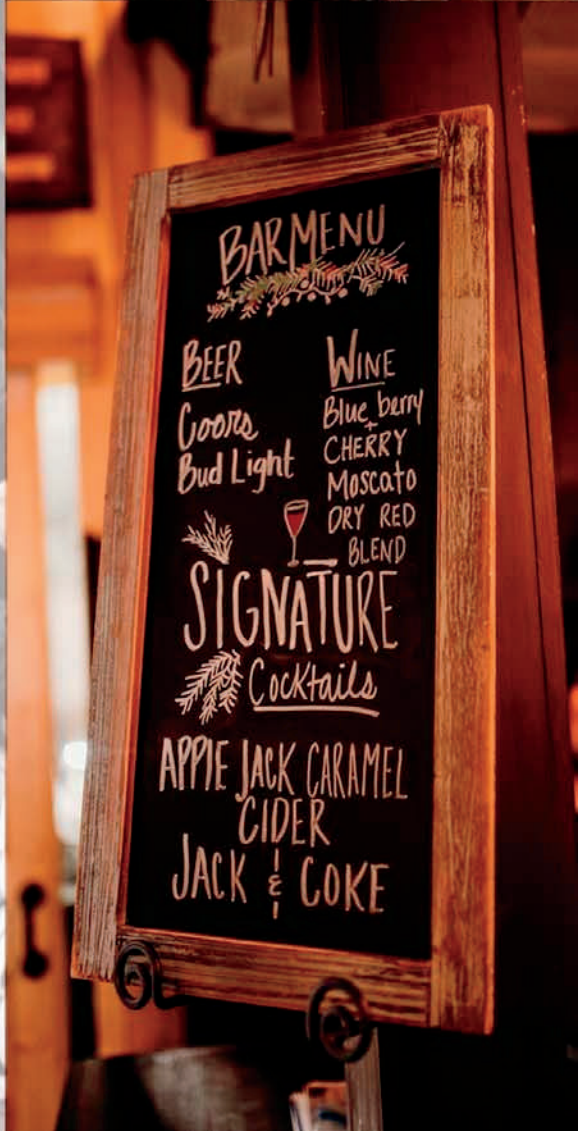 BAR MENU
BEER
Coors
Bud Light
WINE
Blue berry
+
CHERRY
Moscato
DRY RED
BLEND
SIGNATURE
Cocktails
APPLE JACK CARAMEL
CIDER
JACK & COKE